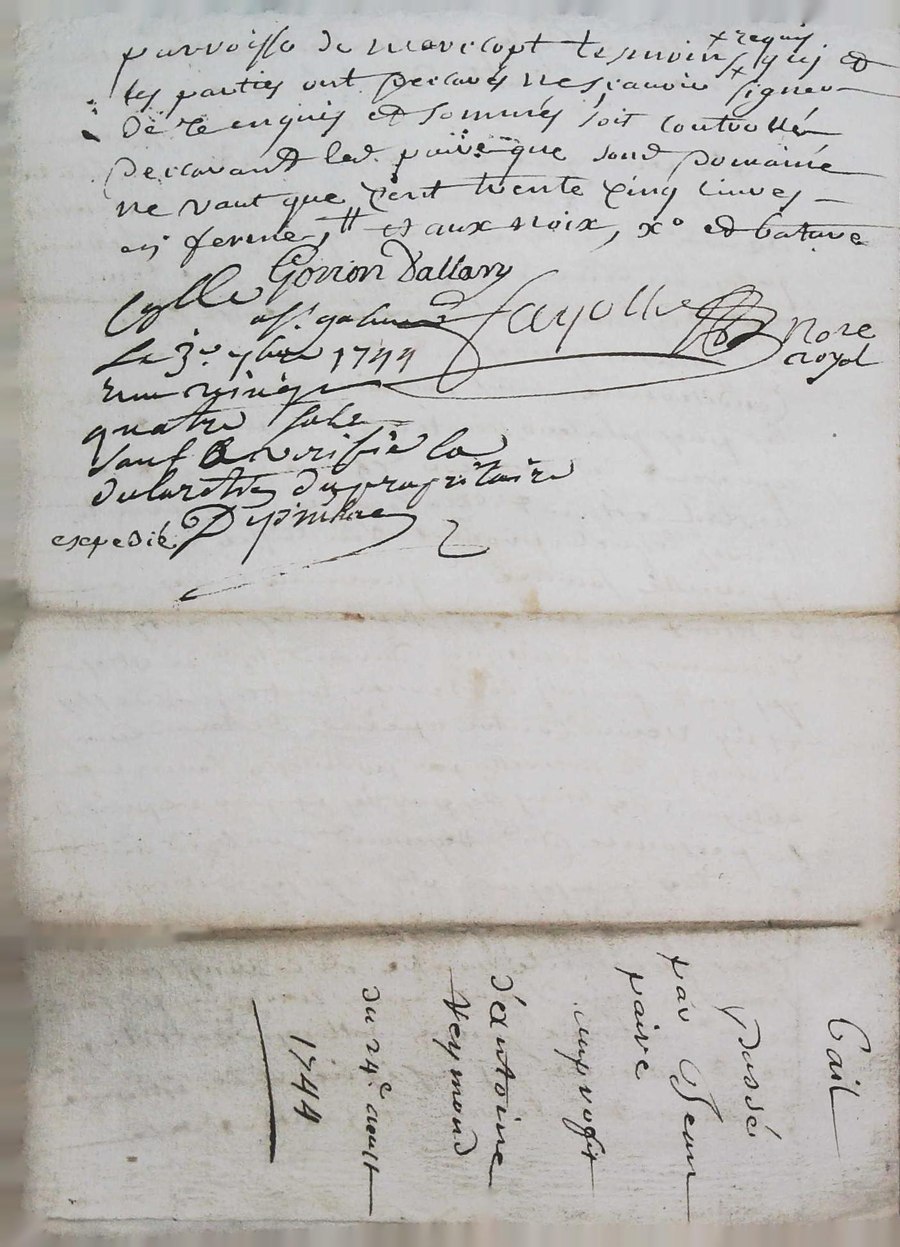 parroisse de marcopt tesmoins x requis qui et
les parties ont déclarés ne scavoir signer
de ce enquis et sommés soit controllé
déclarant led. paire que sond. domaine
ne vaut que cent trente cinq livres
en ferme, et aux noix, x° et batare
Gorion Dallary
Fayolle
Nore
royal
Le 3e 7bre 1744
vingt
quatre sols
sauf a verifié la
du propritaire
expedié
Bail
passé
par Jean
paire
au profit
d'antoine
Veymond
du 24e aoust
1744